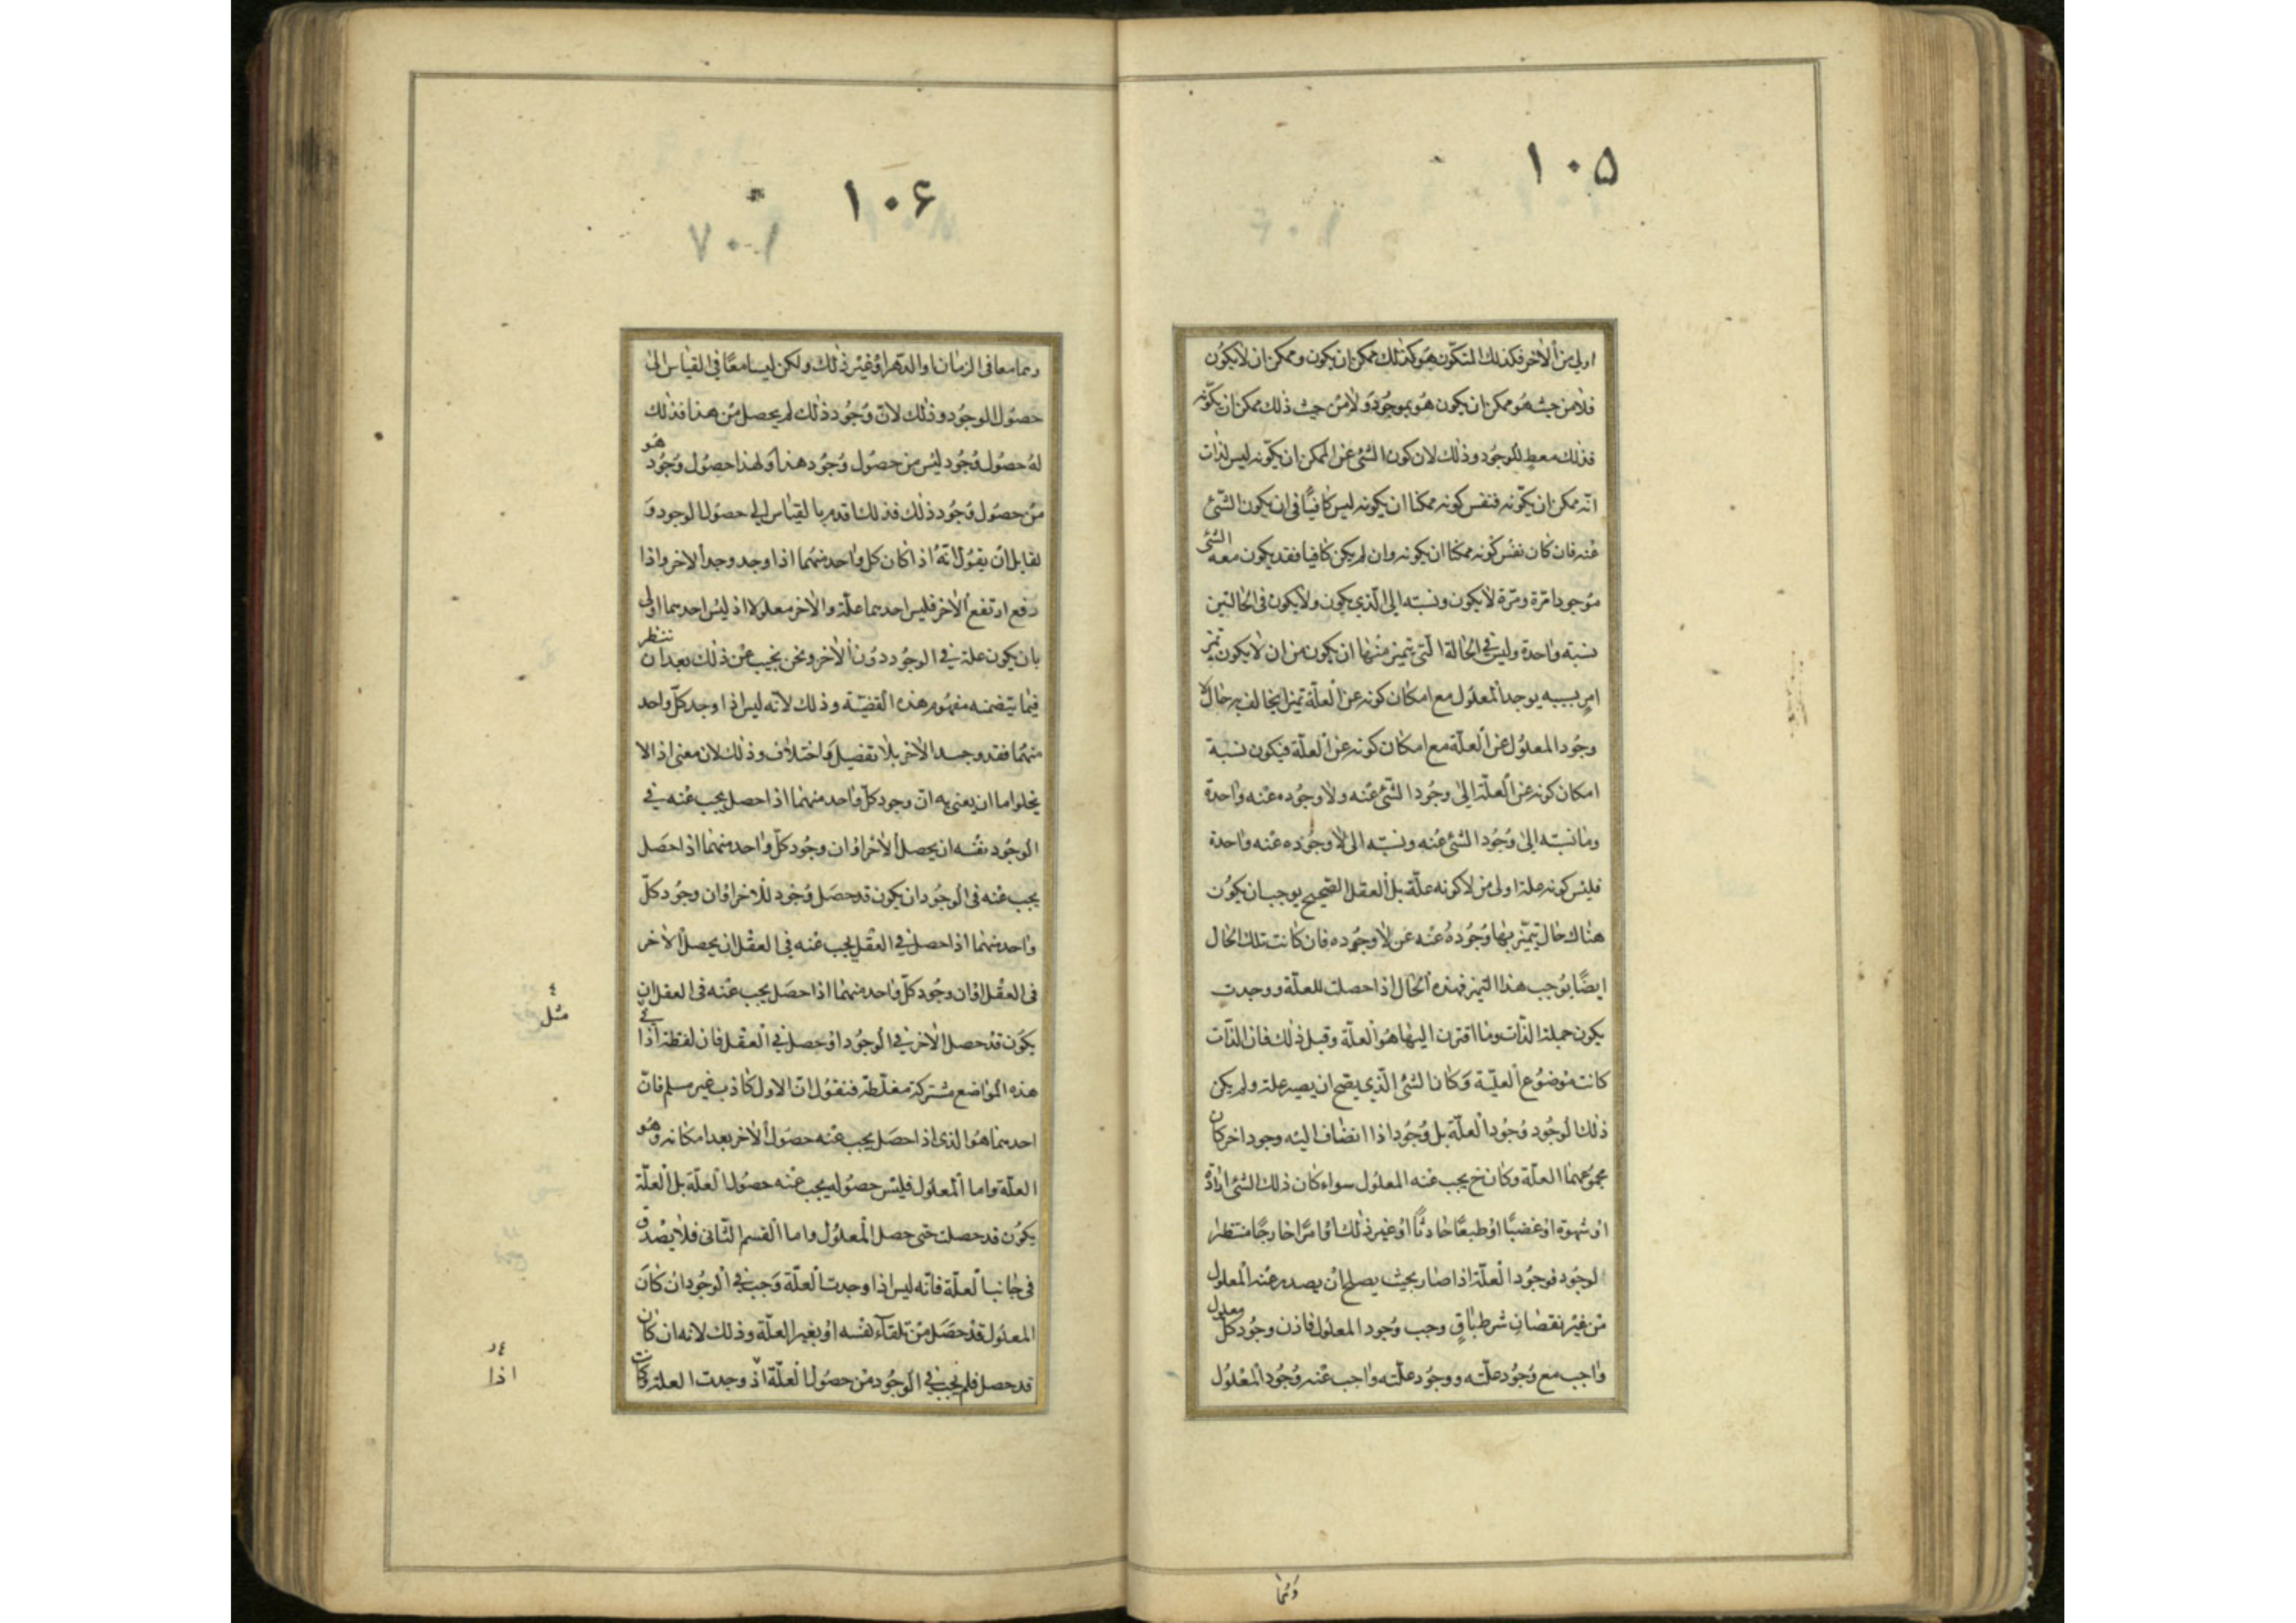 ۱۰۵
اولى من الاخر فكذلك المتكون هو كذلك ممكن ان يكون وممكن ان لا يكون
فلا من حيث هو ممكن ان يكون هو بموجود ولا من حيث ذلك ممكن ان يكونه
فذلك معط للوجود وذلك لان كون الشئ عن الممكن ان يكونه ليس لذات
انه ممكن ان يكونه فنفس كونه ممكنا ان يكونه ليس كافيا فى ان يكون الشئ
عنه فان كان نفس كونه ممكنا ان يكونه وان لم يكن كافيا فقد يكون معه الشئ
موجودا مرة ومرة لا يكون ونسبته الى الذي يكون ولا يكون فى الحالتين
نسبة واحدة وليس فى الحالة التى يتميز منها ان يكون من ان لا يكون تميز
امر بسببه يوجد المعلول مع امكان كونه عن العلة تميزا يخالف به حال لا
وجود المعلول عن العلة مع امكان كونه عن العلة فيكون نسبة
امكان كونه عن العلة الى وجود الشئ عنه ولا وجوده عنه واحدة
وما نسبته الى وجود الشئ عنه ونسبته الى لا وجوده عنه واحدة
فليس كونه علة اولى من لا كونه علة بل العقل الصحيح يوجب ان يكون
هناك حال يتميز بها وجوده عنه عن لا وجوده فان كانت تلك الحال
ايضا يوجب هذا التميز فهذه الحال اذا حصلت للعلة ووجدت
يكون جملة الذات وما اقترن اليها هو العلة وقبل ذلك فان الذات
كانت موضوع العلية وكان الشئ الذي يصح ان يصير علة ولم يكن
ذلك الوجود وجود العلة بل وجود اذا انضاف اليه وجود اخر كان
مجموعهما العلة وكان ح يجب عنه المعلول سواء كان ذلك الشئ ارادة
او شهوة او غضبا او طبعا حادثا او غير ذلك او امرا خارجا منتظرا
لوجود فوجود العلة اذا صار بحيث يصلح ان يصدر عنه المعلول
من غير نقصان شرط باق وجب وجود المعلول فاذن وجود كل معلول
واجب مع وجود علته ووجود علته واجب عنه وجود المعلول
وهما
۱۰۶
۱۰۷
وهما معا فى الزمان او الدهر او غير ذلك ولكن ليسا معا فى القياس الى
حصول الوجود وذلك لان وجود ذلك لم يحصل من هذا فذلك
له حصول وجود ليس من حصول وجود هذا ولهذا حصول وجود هو
من حصول وجود ذلك فذلك اقدم بالقياس الى حصول الوجود و
لقايل ان يقول انه اذا كان كل واحد منهما اذا وجد وجد الاخر واذا
رفع ارتفع الاخر فليس احدهما علة والاخر معلولا اذ ليس احدهما اولى
بان يكون علة فى الوجود دون الاخر ونحن نجيب عن ذلك بعد ان ننظر
فيما يتضمنه مفهوم هذه القضية وذلك لانه ليس اذا وجد كل واحد
منهما فقد وجد الاخر بلا تفصيل واختلاف وذلك لان معنى اذا لا
يخلو اما ان يعنى به ان وجود كل واحد منهما اذا حصل يجب عنه فى
الوجود نفسه ان يحصل الاخر او ان وجود كل واحد منهما اذا حصل
يجب عنه فى الوجود ان يكون قد حصل وجود للاخر او ان وجود كل
واحد منهما اذا حصل فى العقل يجب عنه فى العقل ان يحصل الاخر
فى العقل او ان وجود كل واحد منهما اذا حصل يجب عنه فى العقل ان
يكون قد حصل الاخر فى الوجود او حصل فى العقل فان لفظة اذا
هذه المواضع مشتركة مغلطة فنقول ان الاول كاذب غير مسلم فان
احدهما هو الذى اذا حصل يجب عنه حصول الاخر بعد امكانه وهو
العلة واما المعلول فليس حصوله يجب عنه حصول العلة بل العلة
يكون قد حصلت حتى حصل المعلول واما القسم الثانى فلا يصدق
فى جانب العلة فانه ليس اذا وجدت العلة وجب فى الوجود ان كان
المعلول قد حصل من تلقاء نفسه او بغير العلة وذلك لانه ان كان
قد حصل فلم يجب فى الوجود من حصول العلة اذ وجدت العلة وكانت
مثل
اذا